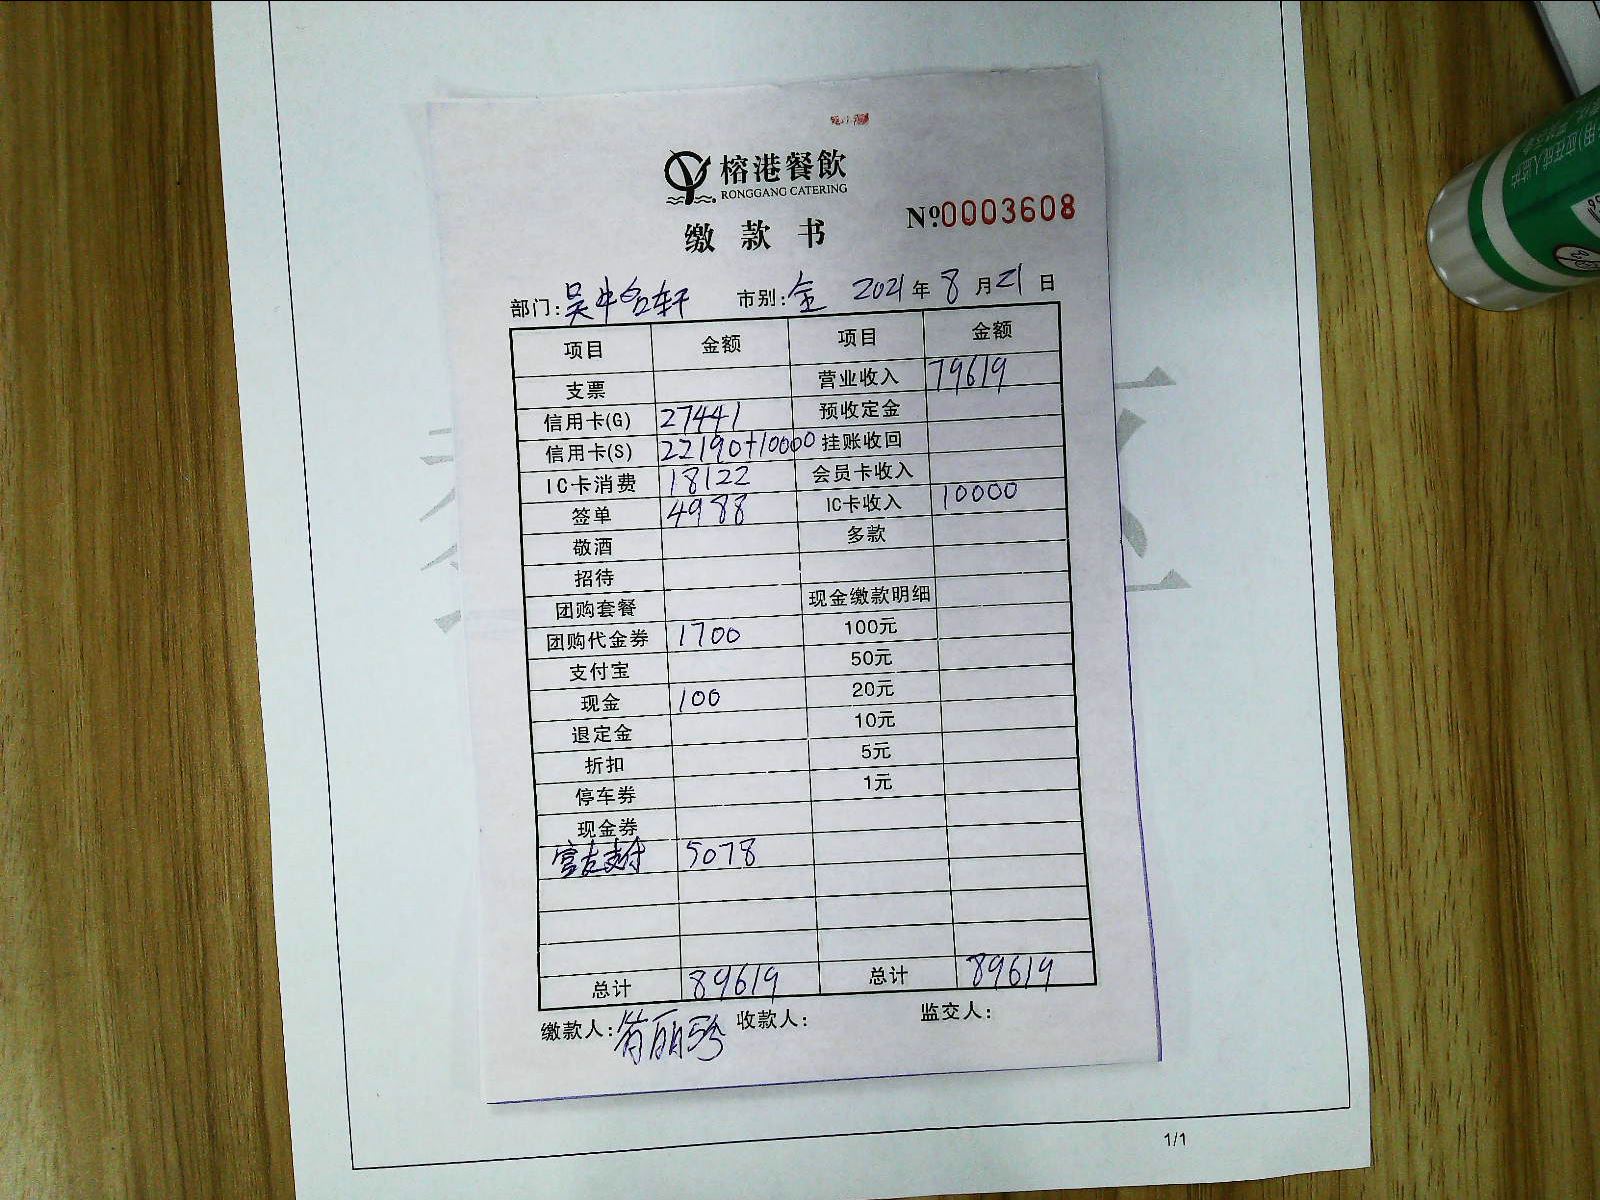 榕港餐飲
RONGGANG CATERING
№0003608
缴款书
部门:吴中合轩 市别:全 2021年8月21日
项目 金额 项目 金额
支票 营业收入 79619
信用卡(G) 27441 预收定金
信用卡(S) 22190+10000 挂账收回
IC卡消费 18122 会员卡收入
签单 4988 IC卡收入 10000
敬酒 多款
招待
团购套餐 现金缴款明细
团购代金券 1700 100元
支付宝 50元
现金 100 20元
退定金 10元
折扣 5元
停车券 1元
现金券
支付 5078
总计 89619 总计 89619
缴款人: 收款人: 监交人:
1/1